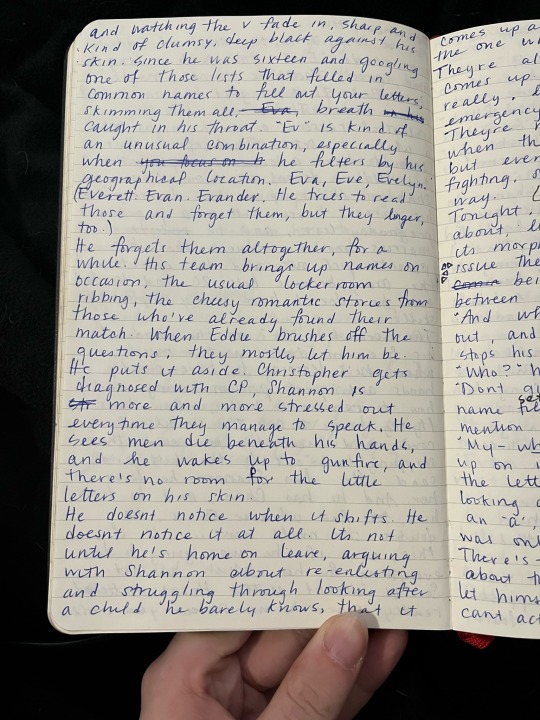 and watching the v fade in, sharp and
kind of clumsy, deep black against his
skin. Since he was sixteen and googling
one of those lists that filled in
common names to fill out your letters,
skimming them all, Eva, breath
caught in his throat. "Ev" is kind of
an unusual combination, especially
when you focus on it he filters by his
geographical location. Eva, Eve, Evelyn.
(Everett. Evan. Evander. He tries to read
those and forget them, but they linger,
too.)
He forgets them altogether, for a
while. His team brings up names on
occasion, the usual locker room
ribbing, the cheesy romantic stories from
those who've already found their
match. When Eddie brushes off the
questions, they mostly let him be.
He puts it aside. Christopher gets
diagnosed with CP, Shannon is
more and more stressed out
everytime they manage to speak. He
sees men die beneath his hands,
and he wakes up to gunfire, and
there's no room for the little
letters on his skin.
He doesnt notice when it shifts. He
doesnt notice it at all. Its not
until he's home on leave, arguing
with Shannon about re-enlisting
and struggling through looking after
a child he barely knows, that it
comes up a
the one w
They're al
comes up.
really.
emergency
They're r
when th
but ever
fighting. s
way. (
Tonight,
about, l
its morp
issue the
bei
between
"And wh
out, and
stops his
"Who?" h
"Dont gu
name
mention
"My - wh
up on i
the lett
looking a
an "a",
was onl
There's
about t
let hims
cant act